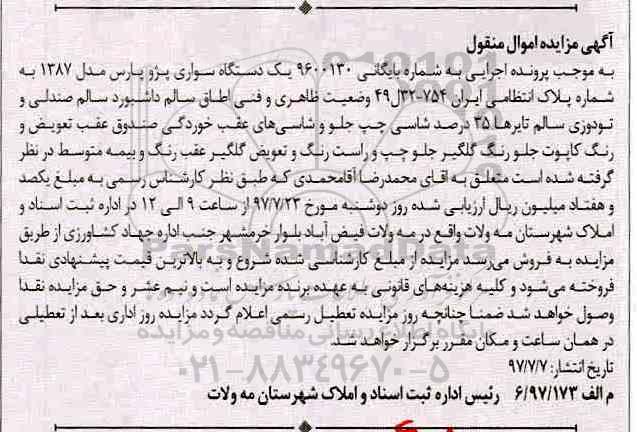 آگهی مزایده اموال منقول
به موجب پرونده اجرایی به شماره بایگانی ۹۶۰۰۱۳۰ یک دستگاه سواری پژو پارس مدل ۱۳۸۷ به
شماره پلاک انتظامی ایران ۷۵۴-۳۲ل۴۹ وضعیت ظاهری و فنی اطاق سالم داشبورد سالم صندلی و
تودوزی سالم تایرها ۳۵ درصد شاسی چپ جلو و شاسی‌های عقب خوردگی صندوق عقب تعویض و
رنگ کاپوت جلو رنگ گلگیر جلو چپ و راست رنگ و تعویض گلگیر عقب رنگ و بیمه متوسط در نظر
گرفته شده است متعلق به اقای محمدرضا آقامحمدی که طبق نظر کارشناس رسمی به مبلغ یکصد
و هفتاد میلیون ریال ارزیابی شده روز دوشنبه مورخ ۹۷/۷/۲۳ از ساعت ۹ الی ۱۲ در اداره ثبت اسناد و
املاک شهرستان مه ولات واقع در مه ولات فیض آباد بلوار خرمشهر جنب اداره جهاد کشاورزی از طریق
مزایده به فروش می‌رسد مزایده از مبلغ کارشناسی شده شروع و به بالاترین قیمت پیشنهادی نقدا
فروخته می‌شود و کلیه هزینه‌های قانونی به عهده برنده مزایده است و نیم عشر و حق مزایده نقدا
وصول خواهد شد ضمنا چنانچه روز مزایده تعطیل رسمی اعلام گردد مزایده روز اداری بعد از تعطیلی
در همان ساعت و مکان مقرر برگزار خواهد شد.
تاریخ انتشار: ۹۷/۷/۷
م الف ۶/۹۷/۱۷۳ رئیس اداره ثبت اسناد و املاک شهرستان مه ولات
پایگاه اطلاع رسانی مناقصه و مزایده
۰۲۱-۸۸۳۴۹۶۷۰-۵